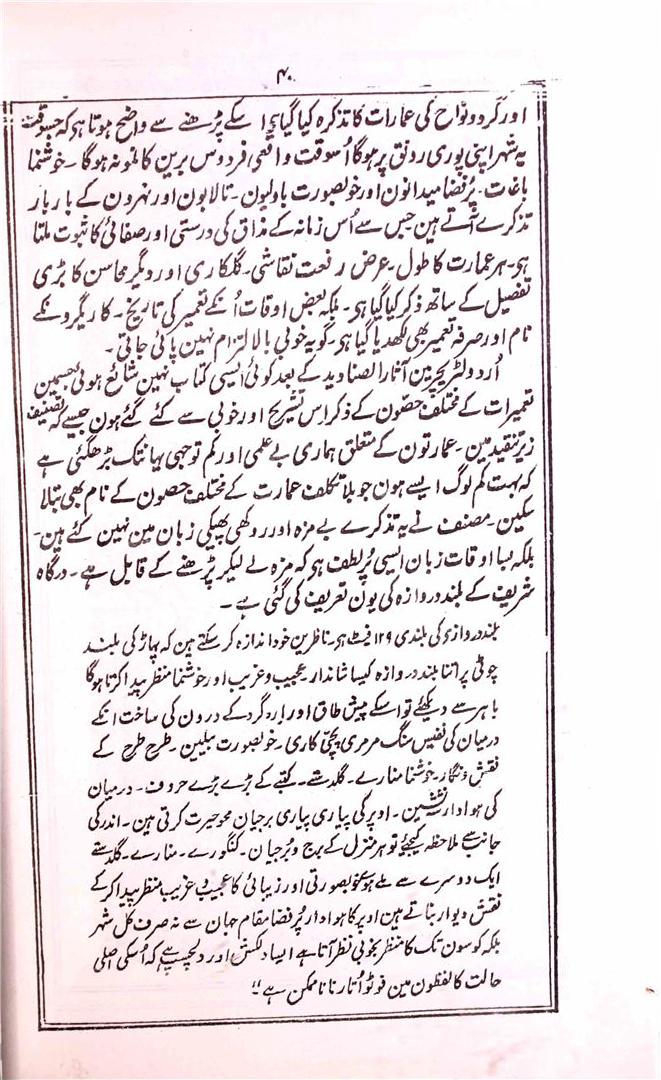 ۴۰
اور گرد و نواح کی عمارات کا تذکرہ کیا گیا ہی اسکے پڑھنے سے واضح ہوتا ہو کہ جسوقت
یہ شہر اپنی پوری رونق پر ہوگا اُسوقت واقعی فردوس برین کا نمونہ ہوگا ۔ خوشنما
باغات ۔ پُر فضا میدانون اور خوبصورت باولیون ۔ تالابون اور نہرون کے بار بار
تذکرے آتے ہین جس سے اُس زمانہ کے مذاق کی درستی اور صفائی کا ثبوت ملتا
ہی ۔ ہر عمارت کا طول ۔ عرض رفعت نقاشی ۔ گلکاری اور دیگر محاسن کا بڑی
تفصیل کے ساتھ ذکر کیا گیا ہو ۔ بلکہ بعض اوقات اُنکے تعمیر کی تاریخ ۔ کاریگرونکے
نام اور صرفہ تعمیر بھی لکھدیا گیا ہو ۔ گو یہ خوبی بالالتزام نہین پائی جاتی ۔
اُردو لٹریچر مین آثار الصنادید کے بعد کوئی ایسی کتاب نہین شائع ہوئی جسمین
تعمیرات کے مختلف حصّون کے ذکر اِس تشریح اور خوبی سے کئے گئے ہون جیسے کہ تصنیف
زیر تنقید مین ۔ عمارتون کے متعلق ہماری بے علمی اور کم توجہی یہانتک بڑھگئی ہے
کہ بہت کم لوگ ایسے ہون جو بلا تکلف عمارت کے مختلف حصون کے نام بھی بتالا
سکین ۔ مصنف نے یہ تذکرے بے مزہ اور روکھی پھیکی زبان مین نہین کئے ہین ۔
بلکہ بسا اوقات زبان ایسی پُر لطف ہو کہ مزہ لے لیکر پڑھنے کے قابل ہے ۔ درگاہ
شریف کے بلند دروازہ کی یون تعریف کی گئی ہے ۔
بلند دروازی کی بلندی ۱۲۹ فیٹ ہو ۔ ناظرین خود اندازہ کر سکتے ہین کہ پہاڑ کی بلند
چوٹی پر اتنا بلند دروازہ کیسا شاندار عجیب و غریب اور خوشنما منظر پیدا کرتا ہوگا
باہر سے دیکھئے تو اسکے پیش طاق اور ارد گرد کے درون کی ساخت انکے
درمیان کی نفیس سنگ مرمری پچی کاری ۔ خوبصورت بیلین ۔ طرح طرح کے
نقش و نگار ۔ خوشنما منارے ۔ گلدستے ۔ کتبے کے بڑے بڑے حروف ۔ درمیان
کی ہوادار نشستین ۔ اوپر کی پیاری پیاری برجیان محو حیرت کرتی ہین ۔ اندر کی
جانب سے ملاحظہ کیجئے تو ہر منزل کے برج و برجیان ۔ کنگورے ۔ منارے ۔ گلدستے
ایک دوسرے سے ملے ہوے خوبصورتی اور زیبائی کا عجیب و غریب منظر پیدا کر کے
نقش دیوار بناتے ہین اوپر کا ہوادار پُر فضا مقام جہان سے نہ صرف کل شہر
بلکہ کوسون تک کا منظر بخوبی نظر آتا ہے ایسا دلکش اور دلچسپ ہے کہ اُسکی اصلی
حالت کا لفظون مین فوٹو اُتارنا ناممکن ہے ''